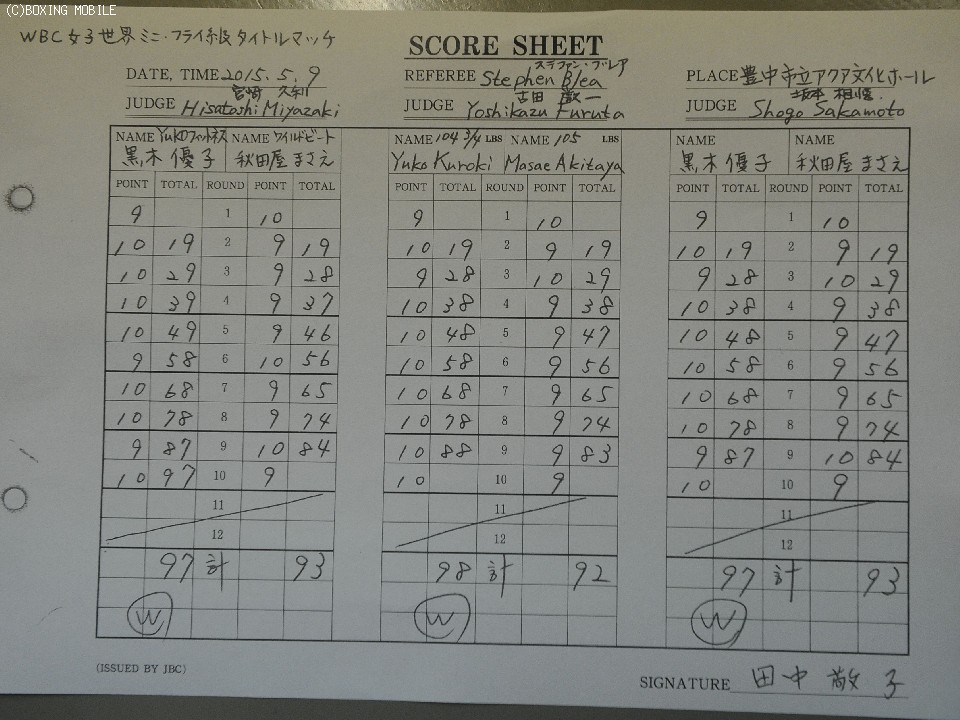 (C)BOXING MOBILE
WBC女子世界ミニ・フライ級タイトルマッチ
SCORE SHEET
DATE, TIME 2015. 5. 9
REFEREE ステファン・ブレア Stephen Blea
PLACE 豊中市立アクア文化ホール
JUDGE 宮崎 久利 Hisatoshi Miyazaki
JUDGE 吉田 Yoshikazu Furuta
JUDGE 坂本 相悟 Shogo Sakamoto
NAME Yukoフィットネス NAME ワイルドビート NAME 104 3/4 LBS 105 LBS NAME NAME
黒木優子 秋田屋まさえ Yuko Kuroki Masae Akitaya 黒木優子 秋田屋まさえ
POINT TOTAL ROUND POINT TOTAL POINT TOTAL ROUND POINT TOTAL POINT TOTAL ROUND POINT TOTAL
9 1 10 9 1 10 9 1 10
10 19 2 9 19 10 19 2 9 19 10 19 2 9 19
10 29 3 9 28 9 28 3 10 29 9 28 3 10 29
10 39 4 9 37 10 38 4 9 38 10 38 4 9 38
10 49 5 9 46 10 48 5 9 47 10 48 5 9 47
9 58 6 10 56 10 58 6 9 56 10 58 6 9 56
10 68 7 9 65 10 68 7 9 65 10 68 7 9 65
10 78 8 9 74 10 78 8 9 74 10 78 8 9 74
9 87 9 10 84 10 88 9 9 83 9 87 9 10 84
10 97 10 9 10 10 9 10 10 9
11 11 11
12 12 12
97 計 93 98 計 92 97 計 93
W W W
(ISSUED BY JBC)
SIGNATURE 田中敬子